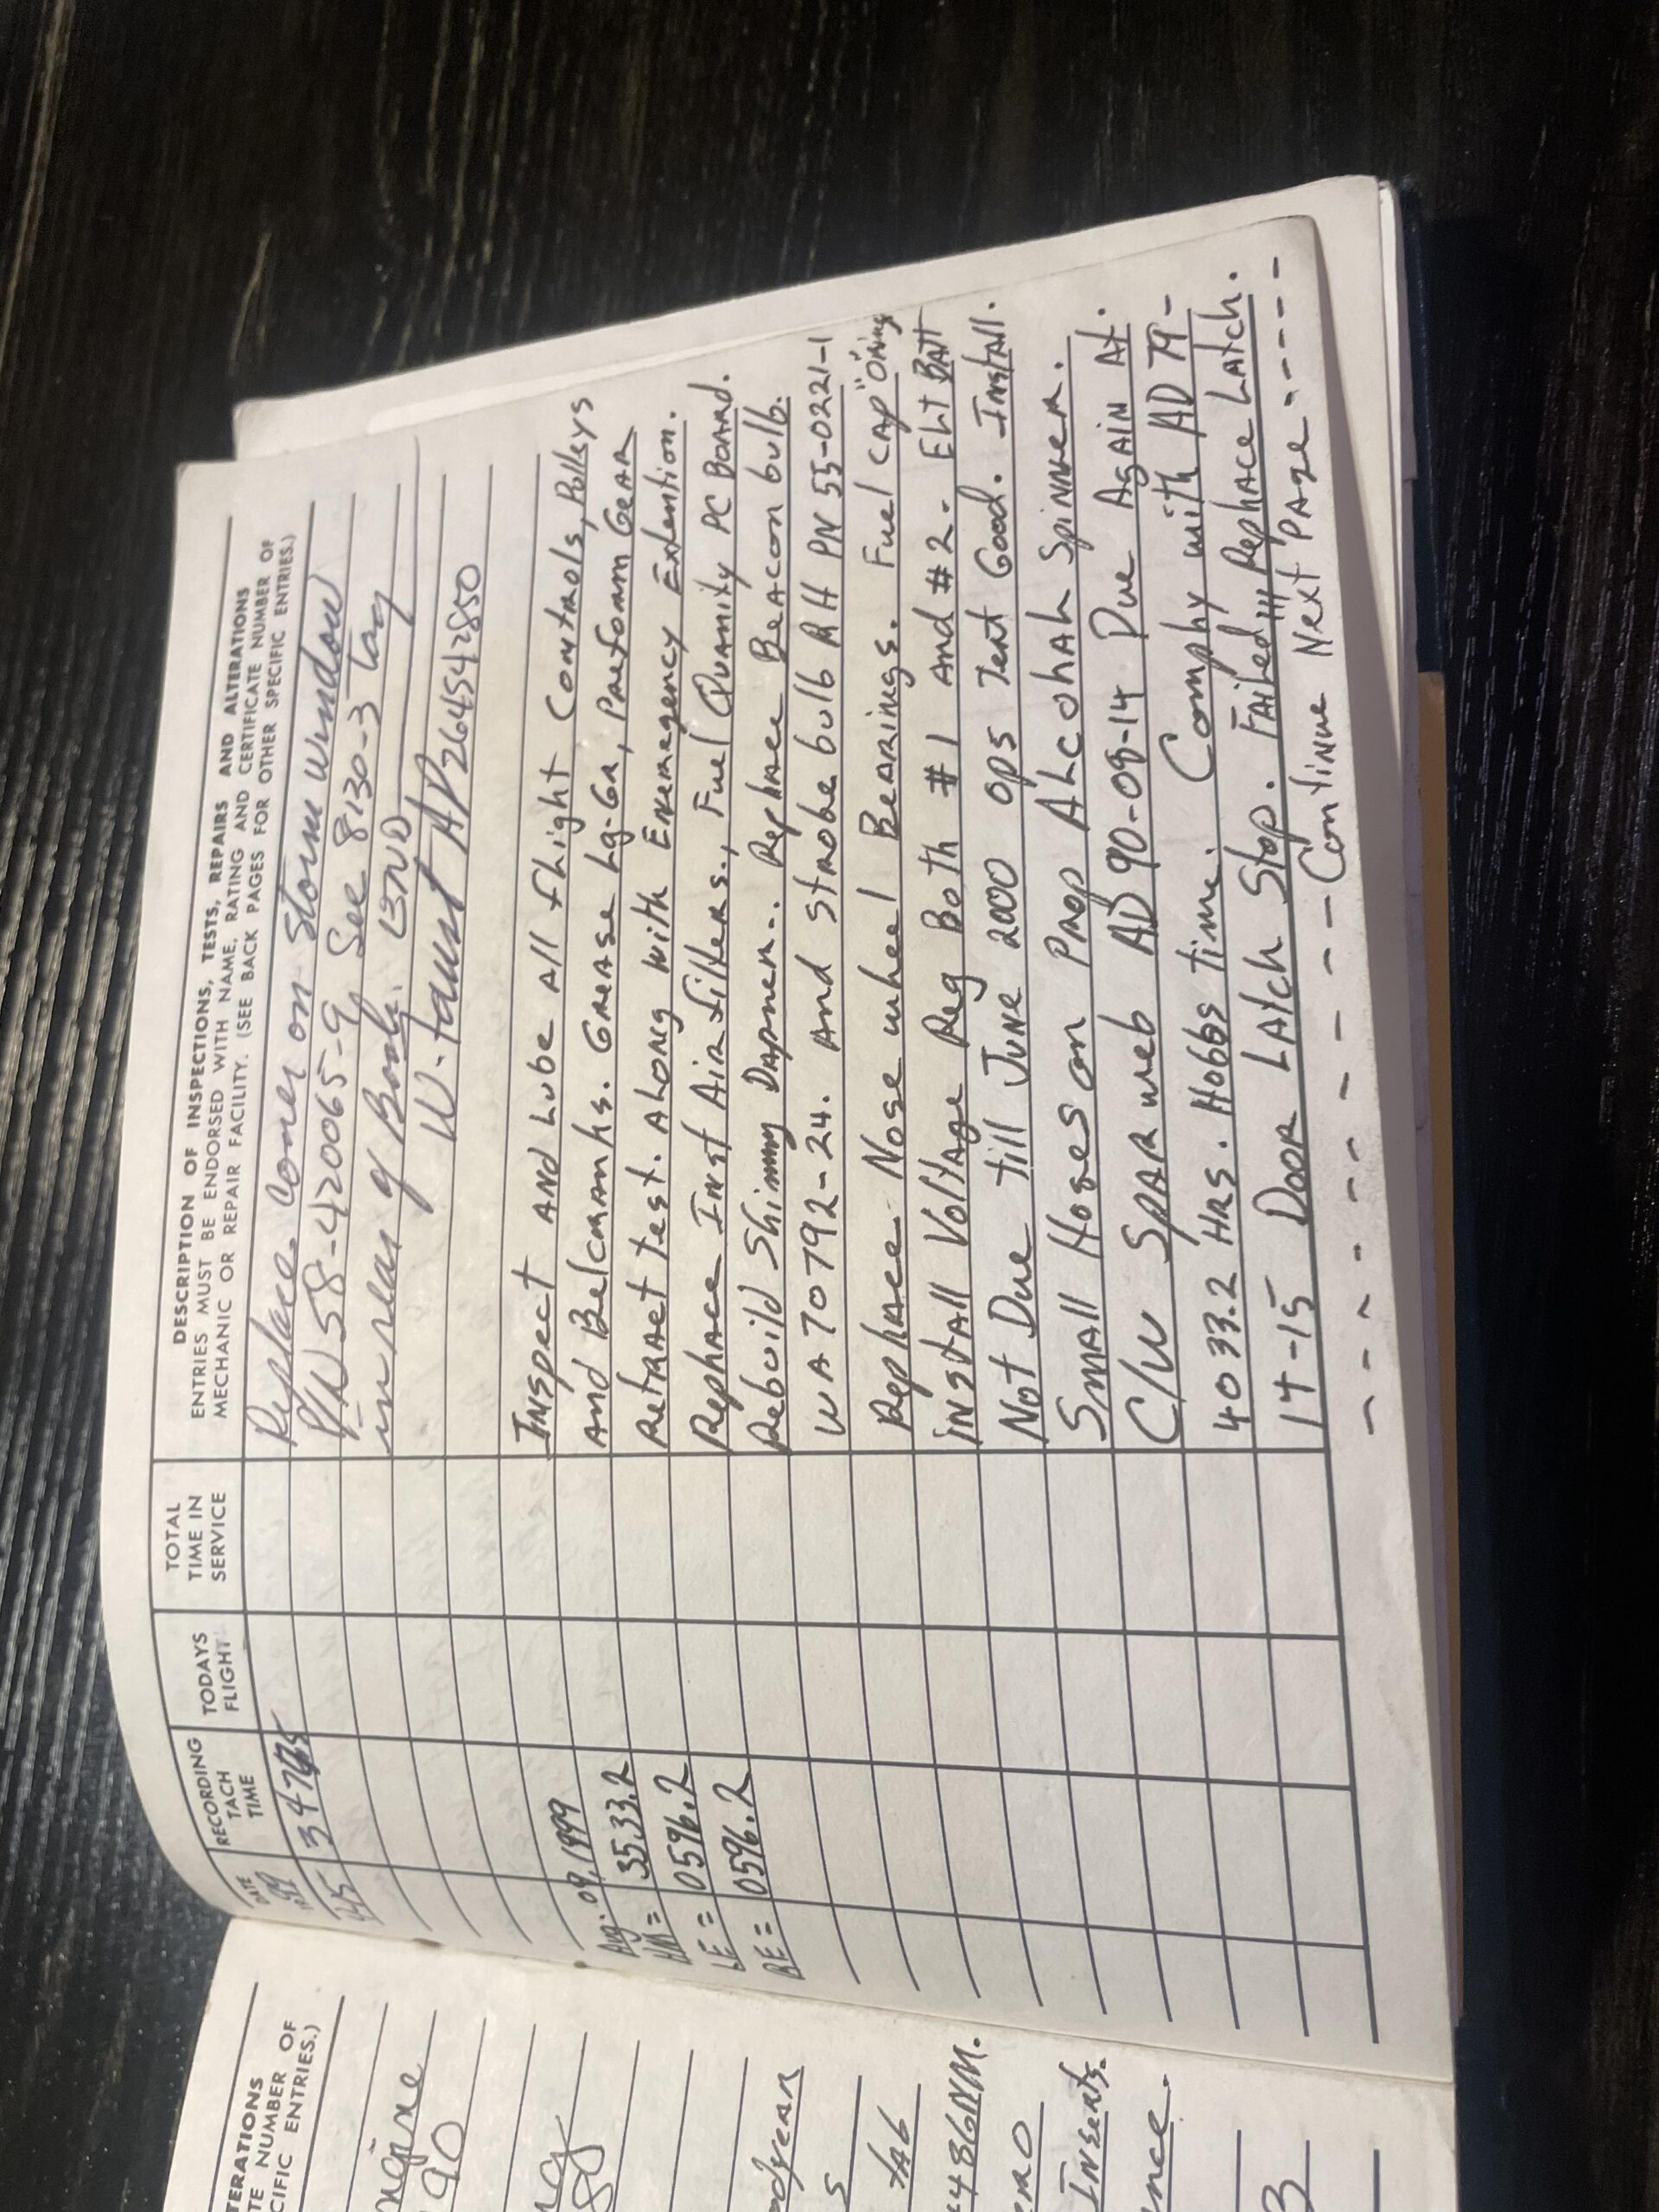 TERATIONS
TE NUMBER OF
CIFIC ENTRIES.)
ngine
90
odyear
5
tab
4486NM.
Inserts.
nce.
3
DATE
RECORDING TACH TIME
TODAYS FLIGHT
TOTAL TIME IN SERVICE
DESCRIPTION OF INSPECTIONS, TESTS, REPAIRS AND ALTERATIONS
ENTRIES MUST BE ENDORSED WITH NAME, RATING AND CERTIFICATE NUMBER OF
MECHANIC OR REPAIR FACILITY. (SEE BACK PAGES FOR OTHER SPECIFIC ENTRIES.)
Replace on storm window
P/N 58-420065-9 See 8130-3 tag
in rear of Book.
W. Faust AP264542850
Aug. 09, 1999 Inspect And Lube All flight Controls, Pulleys
3533.2 And Belcranks. Grease Lg-Gr, Preform Gear
0596.2 Retract test. Along with Emergency Extention.
LE = Replace Inst Air filters., Fuel Quanity PC Board.
RE = 0596.2 Rebuild Shimmy Dapner.. Replace Beacon bulb.
WA 70792-24. And strobe bulb RH PN 55-0221-1
Replace Nose wheel Bearings. Fuel cap "Oring
install Voltage Reg Both #1 And #2. ELT BAtt
Not Due till June 2000 ops Test Good. Install.
Small Hoses on Prop Alcohal Spinner.
C/W Spar web AD 90-08-14 Due Again At.
4033.2 Hrs. Hobbs time. Comply with AD 79-
14-15 Door Latch Stop. Failed!!! Replace Latch.
- - - - - - - - Continue Next Page - - - - -